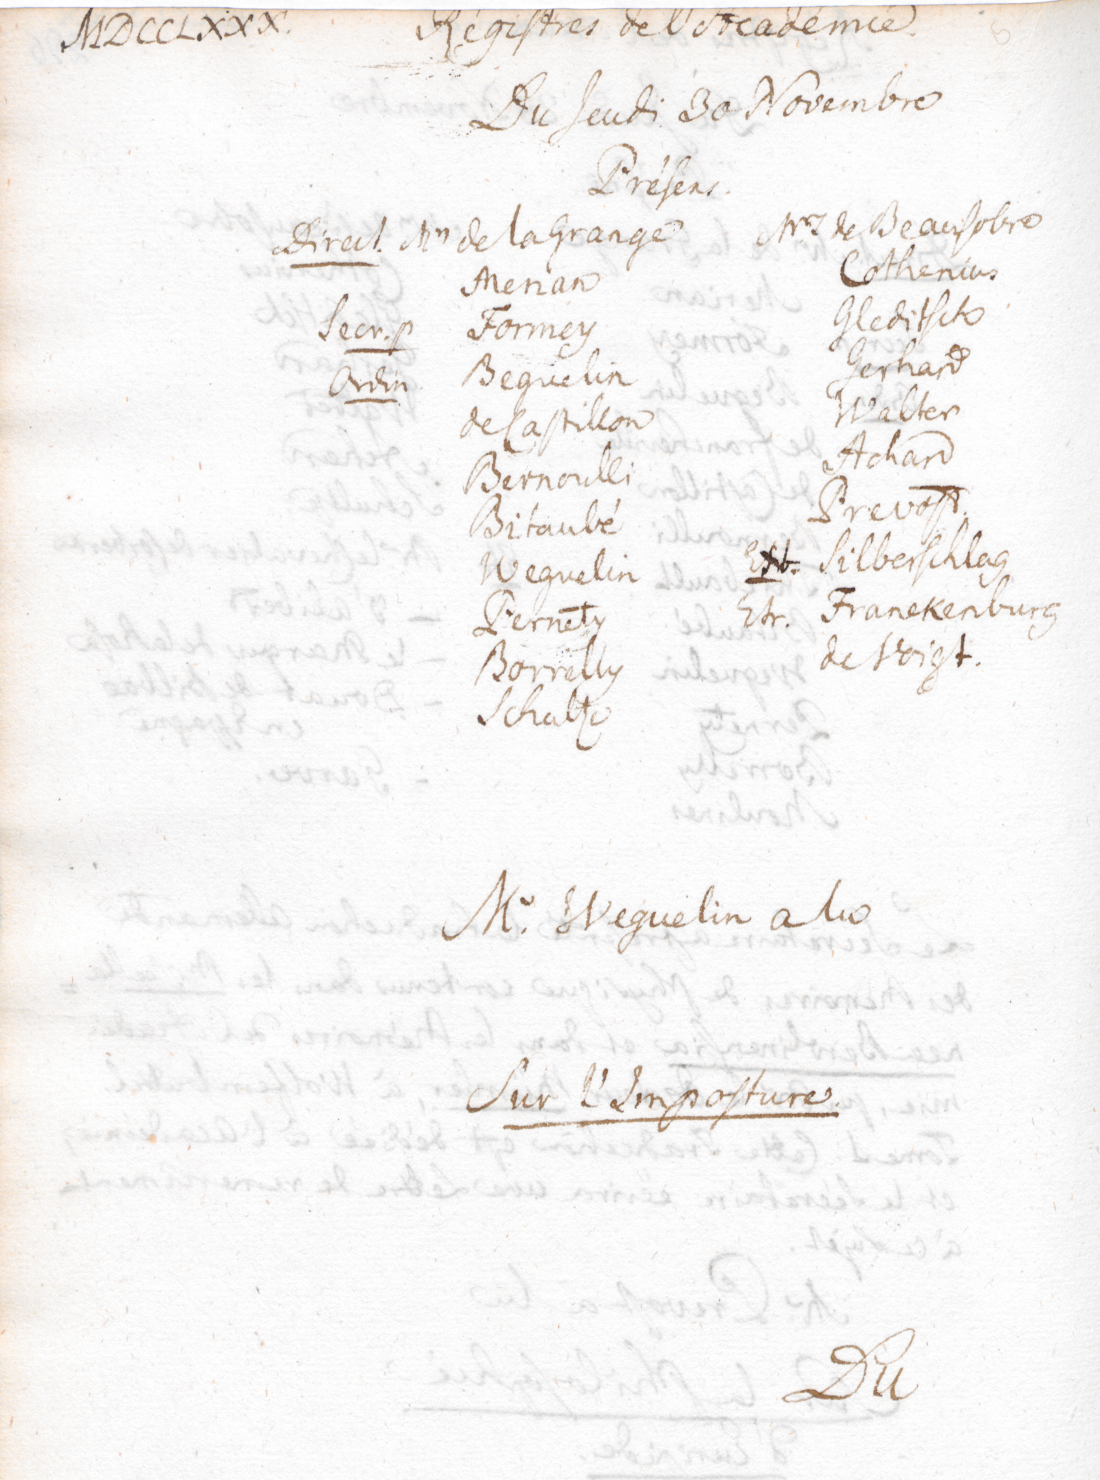 MDCCLXXX. Régistres de l'Academie.
Du Jeudi 30 Novembre
Présens.
Direct. Mrs de la Grange
Merian
Secr. p Formey
Ordin Beguelin
de Castillon
Bernoulli
Bitaubé
Weguelin
Pernety
Borrelly
Schultz
Mrs de Beausobre
Cothenius
Gleditsch
Gerhard
Walter
Achard
Prevost.
Silberschlag
Etr. Franckenburg
de Voigt.
Mr. Weguelin a lu
Sur l'Imposture.
Du